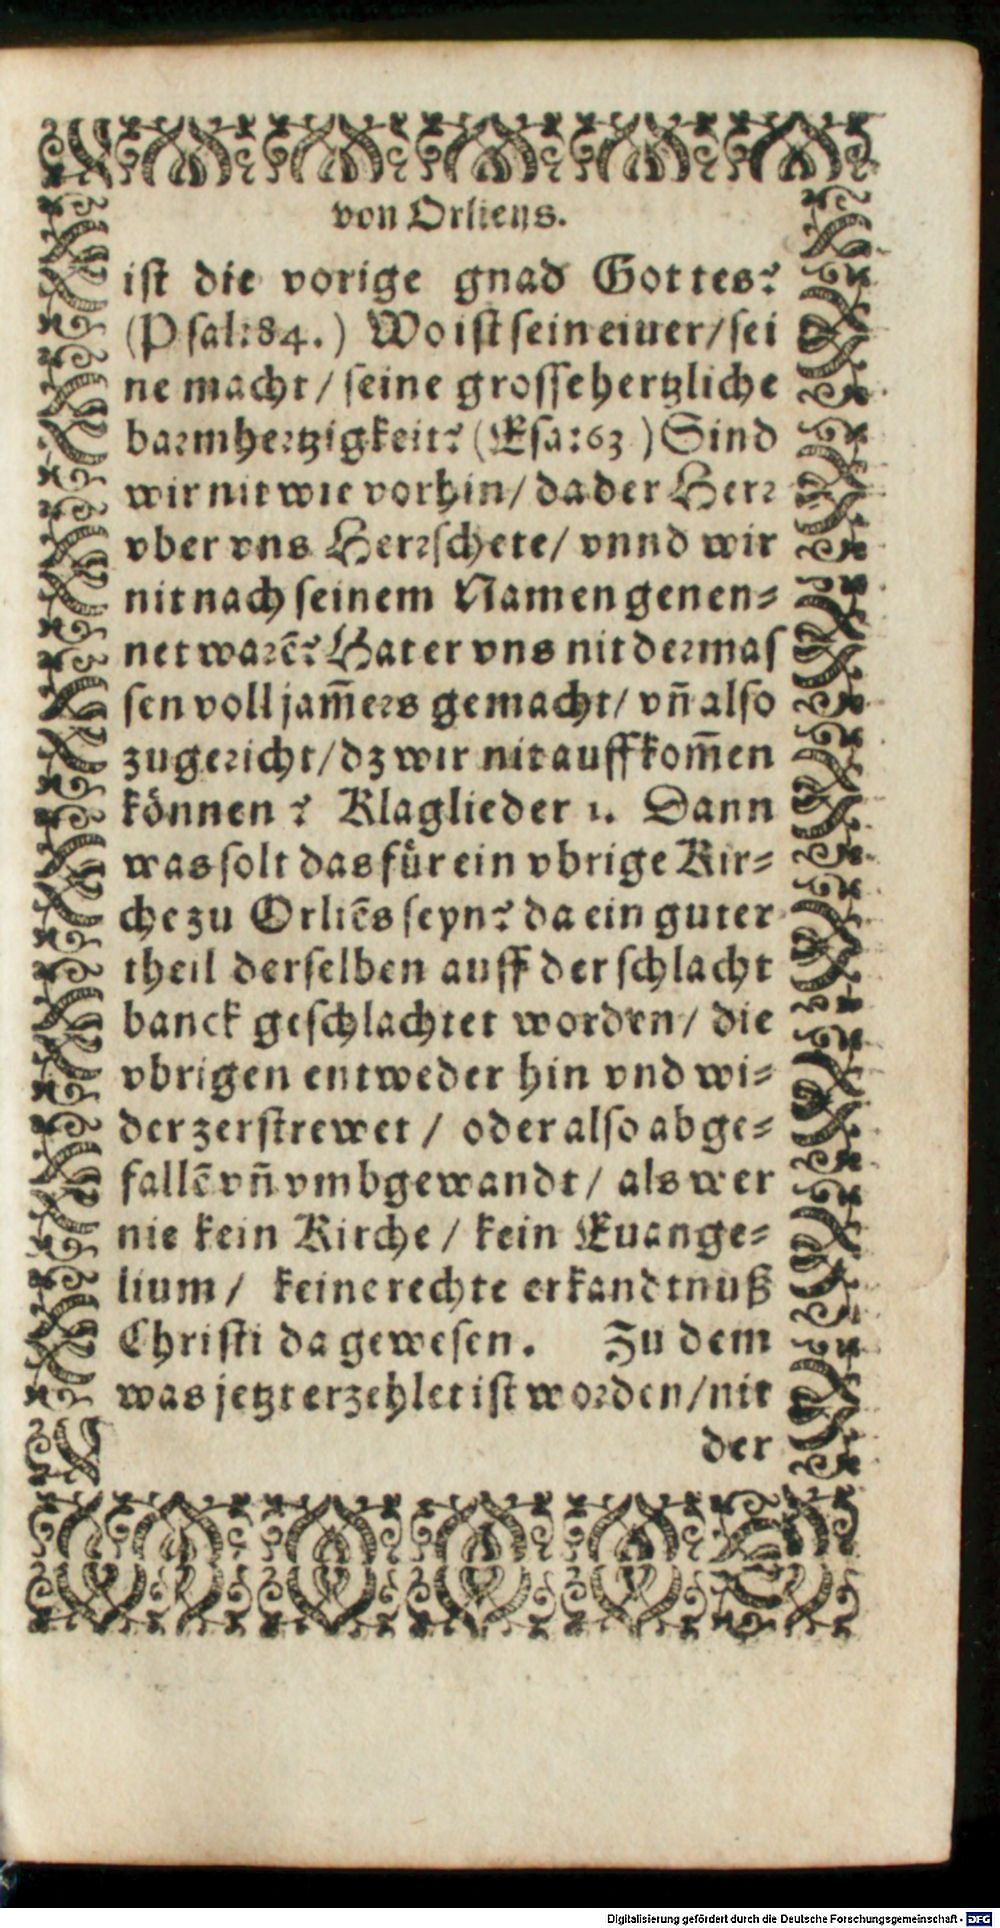 von Orliens.
ist die vorige gnad Gottes?
(Psal:84.) Wo ist sein eiuer/ sei
ne macht/ seine grosse hertzliche
barmhertzigkeit? (Esa:63) Sind
wir nit wie vorhin/ da der Herr
vber vns Herrschete/ vnnd wir
nit nach seinem Namen genen-
net warē? Hat er vns nit dermas
sen voll jam̄ers gemacht/ vn̄ also
zugericht/ dz wir nit auffkom̄en
können? Klaglieder 1. Dann
was solt das für ein vbrige Kir-
che zu Orliēs seyn? da ein guter
theil derselben auff der schlacht
banck geschlachtet worden/ die
vbrigen entweder hin vnd wi-
der zerstrewet/ oder also abge-
fallē vn̄ vmbgewandt/ als wer
nie kein Kirche/ kein Euange-
lium/ keine rechte erkandtnuß
Christi da gewesen. Zu dem
was jetzt erzehlet ist worden/ nit
der
Digitalisierung gefördert durch die Deutsche Forschungsgemeinschaft - DFG